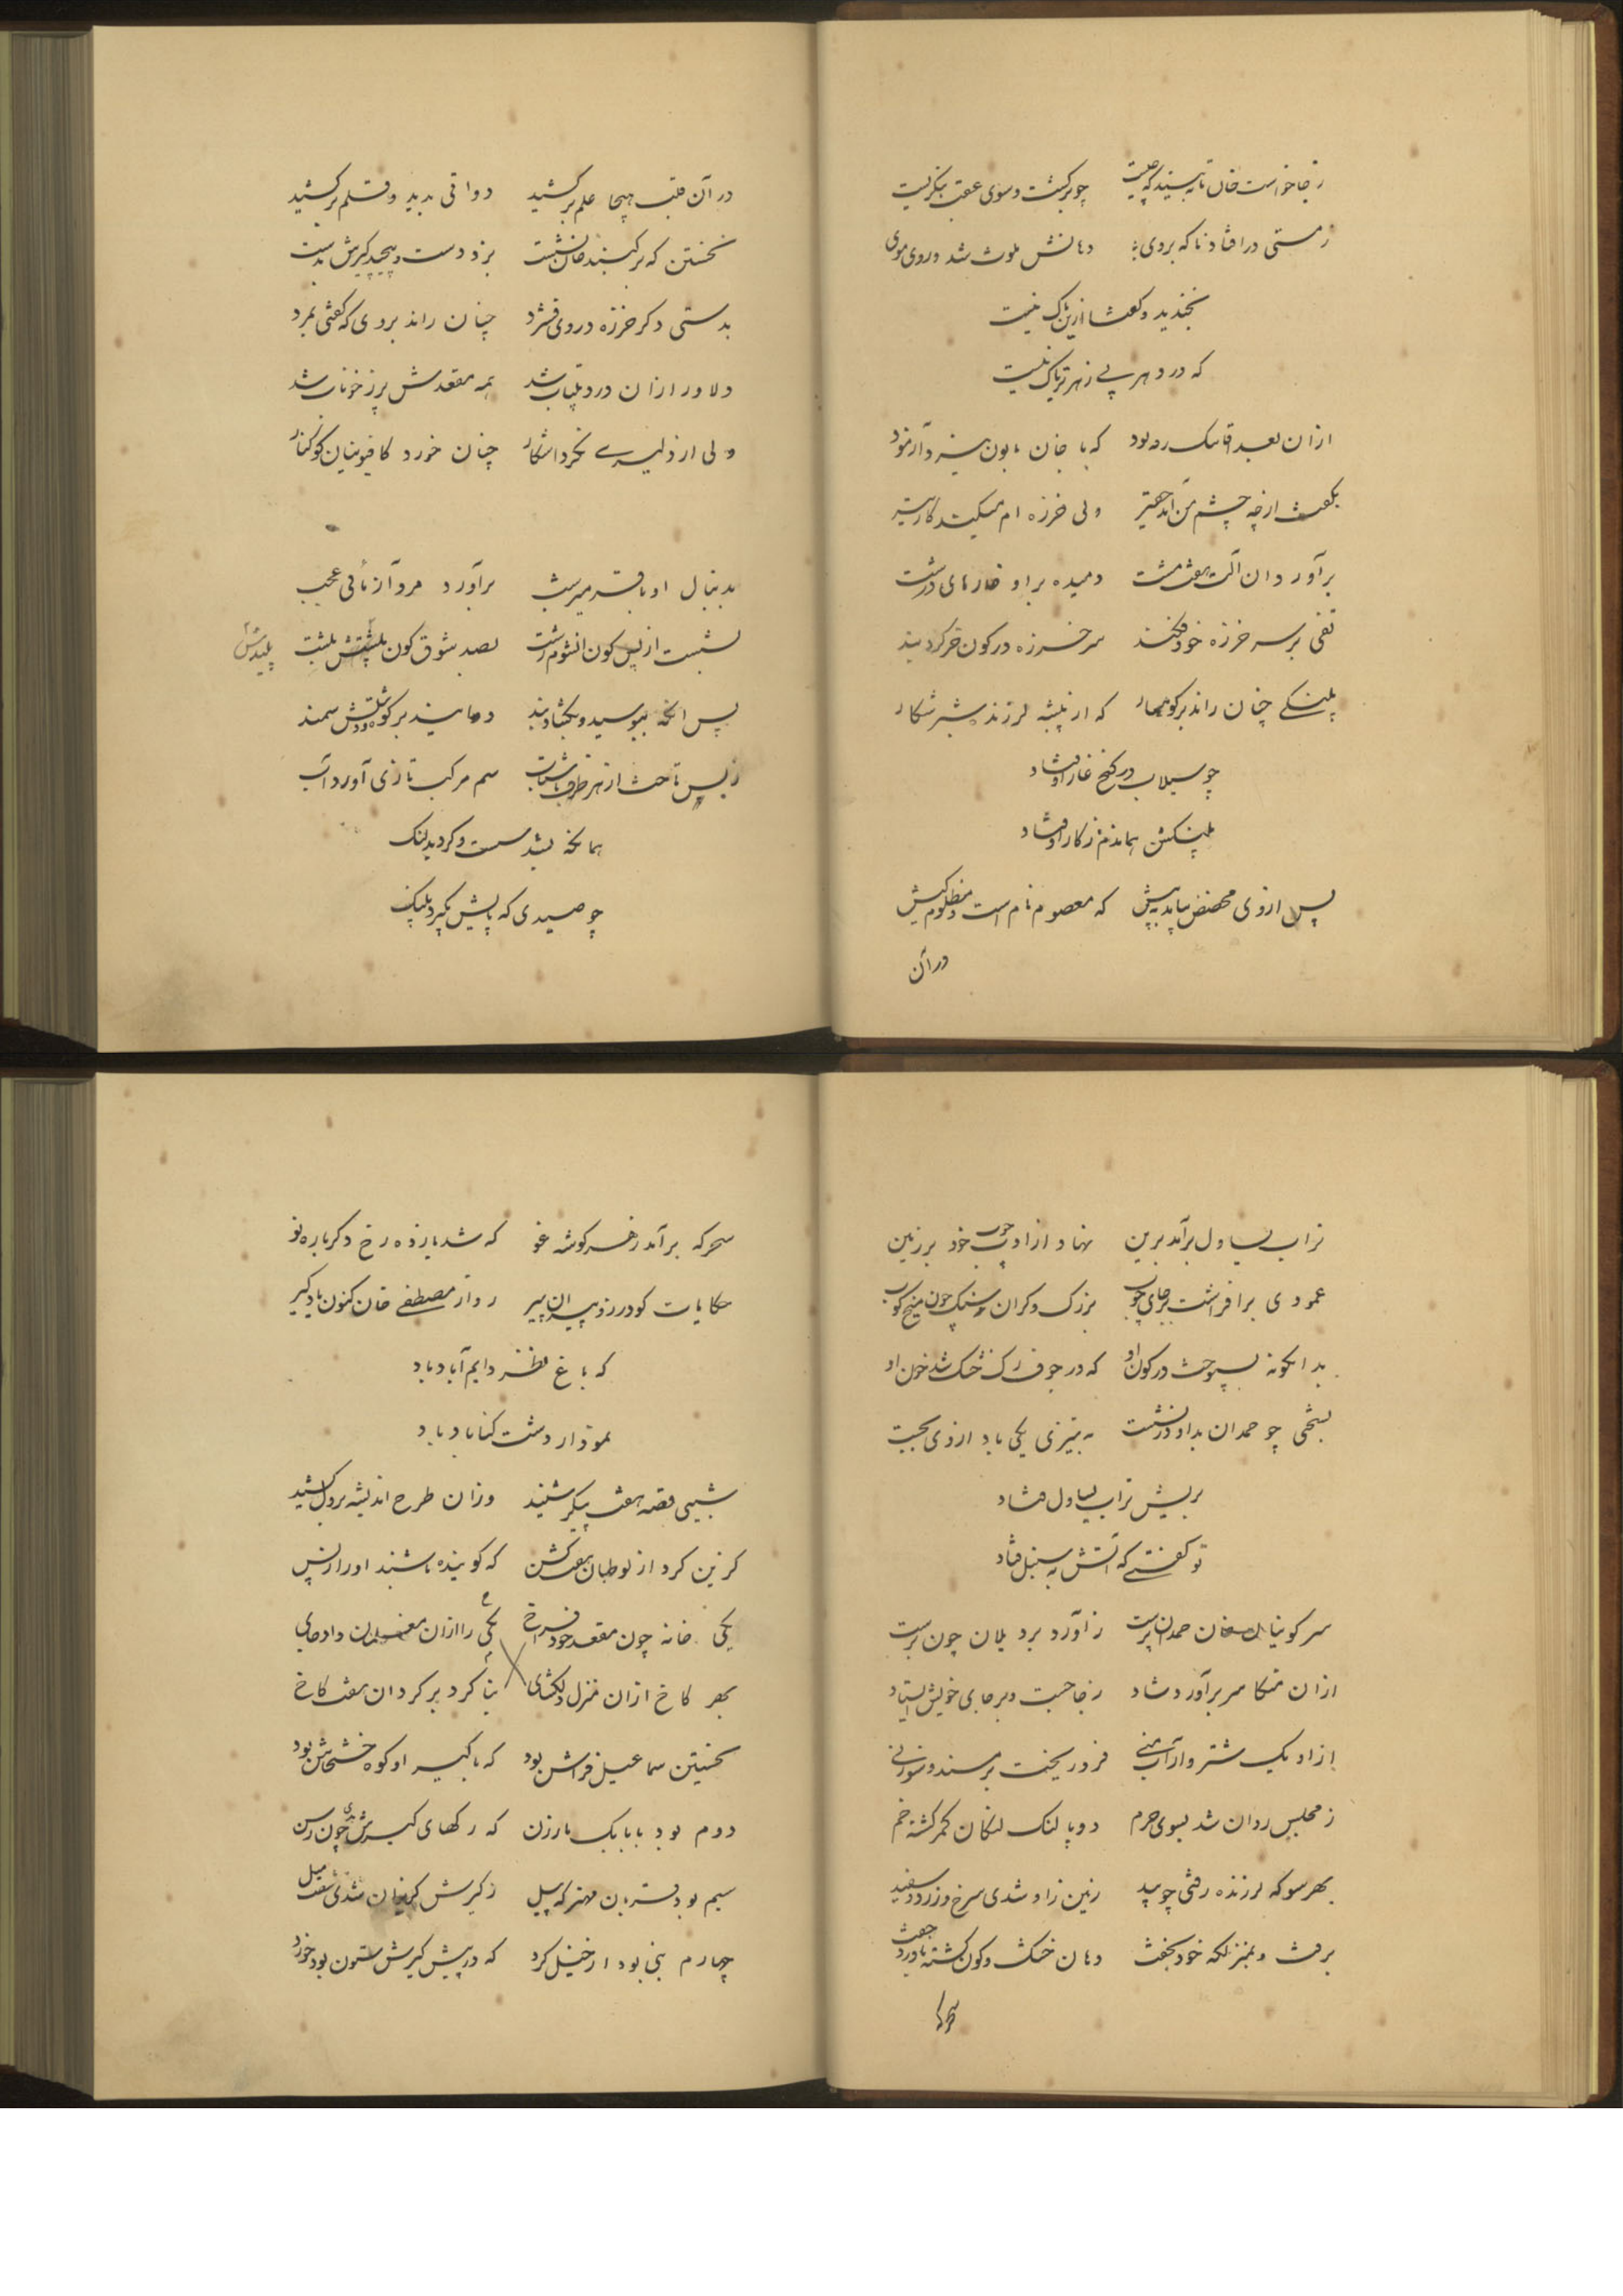 ز جا خواست خان تا ببیند که چیست چو برگشت و سوی عقب بنگریست
ز مستی در افتاد ناگه بروی دهانش ملوث شد و روی و موی
بخندید و گفتا ازین باک نیست
که در دهر بی زهر تریاک نیست
ازان بعد قاسمک ره بود که با خان بابون نبرد آزمود
بگفت ارچه چشم من آمد حقیر ولی خرزه ام میکند کار شیر
برآورد آن آلت هفت مشت دمیده بر او خارهای درشت
تفی بر سر خرزه خود فکند سر خرزه در کون خر کرد بند
پلنگی چنان راند بر کوهسار که از بیشه لرزند شیر شکار
چو سیلاب در کنج غار اوفتاد
پلنگش بماندم ز کار اوفتاد
پس از وی مخنص بیامد به پیش که معصوم نام است و مظلوم کیش
در آن
در آن قلب هیجا علم برکشید دواتی بدید و قلم برکشید
نخستین که بر مسند خان نشست بزد دست و پیچید کیرش بدست
بدستی دگر خرزه در وی فشرد چنان راند بر وی که گفتی بمرد
دلاور ازان درد بیتاب شد همه مقعدش پر ز خوناب شد
ولی از دلیری نکرد آشکار چنان خورد کافیونیان کوکنار
بدنبال او باقر میرشب برآورد مردآزمائی عجب
نشست از پس کون انشوم زشت بصد شوق کون پلشتش بلشت
پلیدش
پس آنگه ببوسید و بگشاد بند دمانید بر کوه سمند
ز بس تاخت از هر طرف با شتاب سم مرکب تازی آورد آب
همانگه بشد سست و گردید لنگ
چو صیدی که پایش بگیرد پلنگ
تراب یساول برآمد برین نهاد از ادب چوب خود بر زمین
عمودی برافراشت بر جای چوب بزرگ و گران و سنگ چون میخ کوب
بدانگونه بسپوخت در کون او که در جوف رگ خشک شد خون او
بسختی چو حمدان بداد درنشست به تیزی یکی باد از وی بجست
بریش تراب یساول فتاد
تو گفتی که آتش به سنبل فتاد
سر کونیان خان حمدان پرست ز آورد برد یلان چون برست
ازان متکا سر برآورد شاد ز جا جست و بر جای خویش ایستاد
ازو یک شتروار آب منی فرو ریخت بر مسند و سوزنی
ز مجلس روان شد بسوی حرم دو پا لنگ لنگان کمر گشته خم
بهر سو که لرزنده رفتی چو بید زمین زاو شدی سرخ و زرد و سفید
برفت و بمنزلگه خود بخفت دهان خشک و کون گشته با درد جفت
سحرگه
سحرگه برآمد ز هر گوشه غو که شد باز ده رخ دگرباره نو
حکایات گودرز و پیران پیر روا ز مصطفی خان کنون یادگیر
که باغ ظفر دایم آباد باد
نمودار دشت کناباد باد
شبی قصه هفت پیکر شنید وزان طرح اندیشه بر دل کشید
گزین کرد از لوطیان هفت کس که گوینده باشند او را ز پس
یکی خانه چون مقعد خود فراخ یکی را ازان داد جای
بهر کاخ ازان منزل دلگشای بنا کرد بر گرد آن هفت کاخ
نخستین سماعیل فراش بود که با کیر او کوه خشخاش بود
دوم بود بابا بک بارزن که رگهای کیرش بدی چون رسن
سیم بود قربان مهتر که پیل ز کیرش گریزان شدی هفت میل
چهارم نبی بود از خیل کرد که در پیش کیرش ستون بود خورد